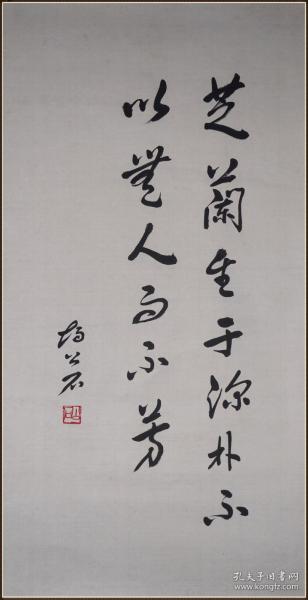 芝蘭生于深林不
以無人而不芳
孔夫子旧书网
www.kongfz.com